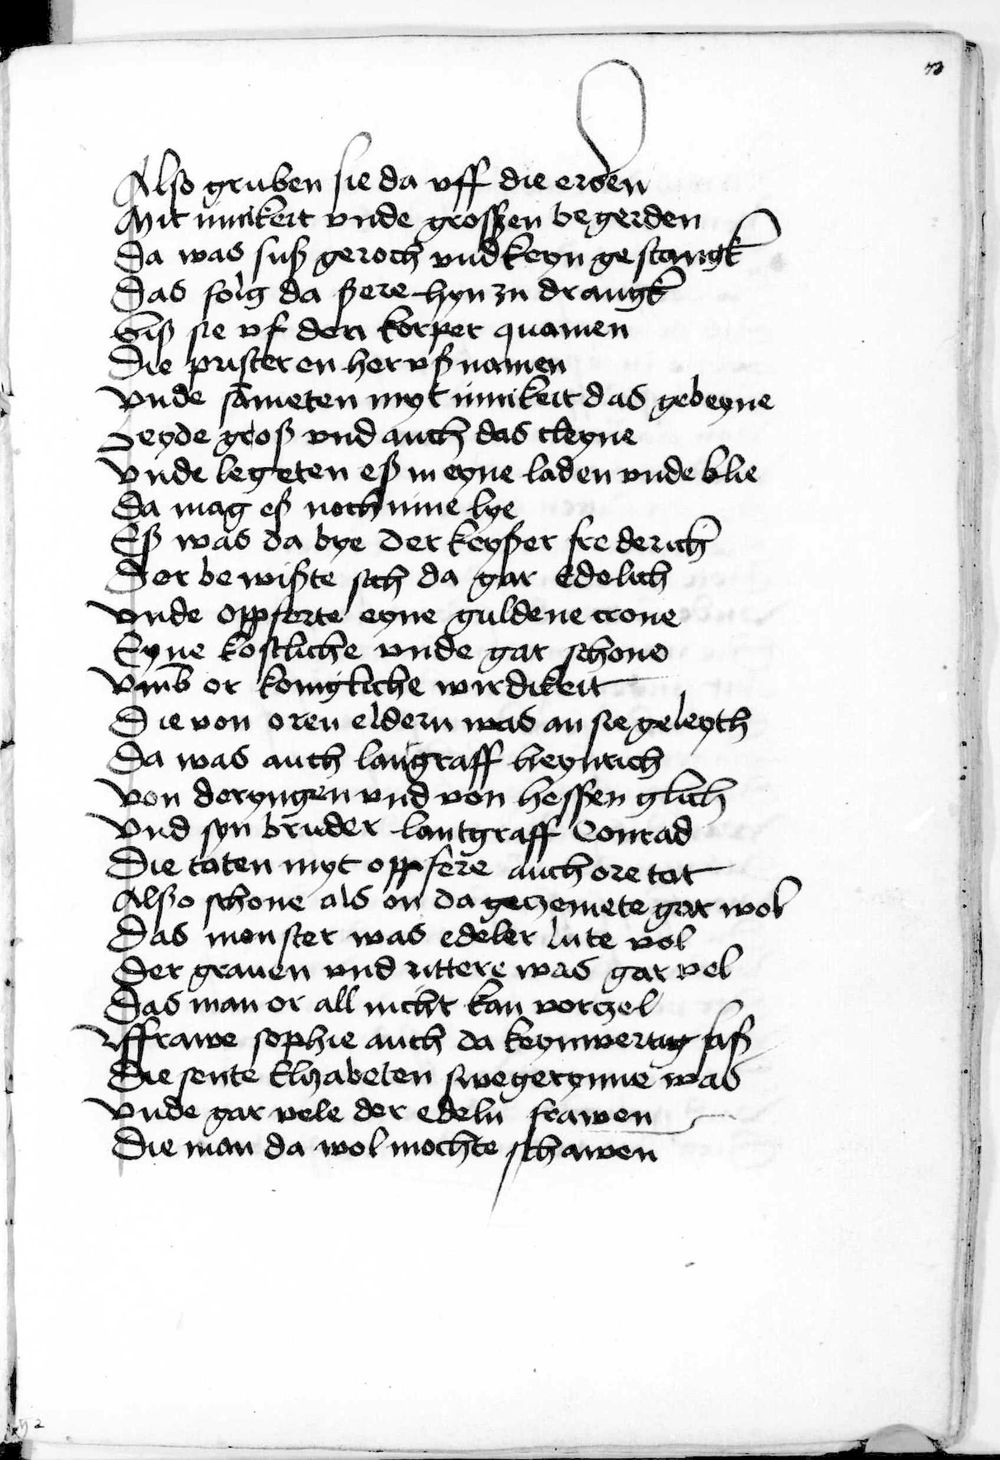 73
Also gruben sie da uff die erden
Mit innikeit vnde groszen begerden
Da was susz geroch vnd keyn gestangk
Das folg da szere hyn zu drangk
Bisz sie vf den korper quamen
Die prister en her vsz namen
Vnde sāmeten myt innikeit das gebeyne
Beyde grosz vnd auch das cleyne
Vnde legeten esz in eyne laden vnde blie
Da mag esz noch inne lye
Esz was da bye der keyszer frederich
Der bewiszte sich da gar edelich
Vnde oppferte eyne guldene crone
Eyne kostliche vnde gar schone
Vmb or konigliche wirdikeit
Die von oren eldern was an sie geleyth
Da was auch langraff heynrich
Von doryngen vnd von hessen glich
Vnd syn bruder lantgraff Conrad
Die taten myt oppfere auch ore tat
Also schone als on da geczemete gar wol
Das monster was edeler lute vol
Der grauen vnd rittere was gar vel
Das man or all nicht kan vorczel
Vffrawe sophie auch da keynwertig sasz
Die sente Elyzabeten swegerynne was
Vnde gar vele der edeln frawen
Die man da wol mochte schawen